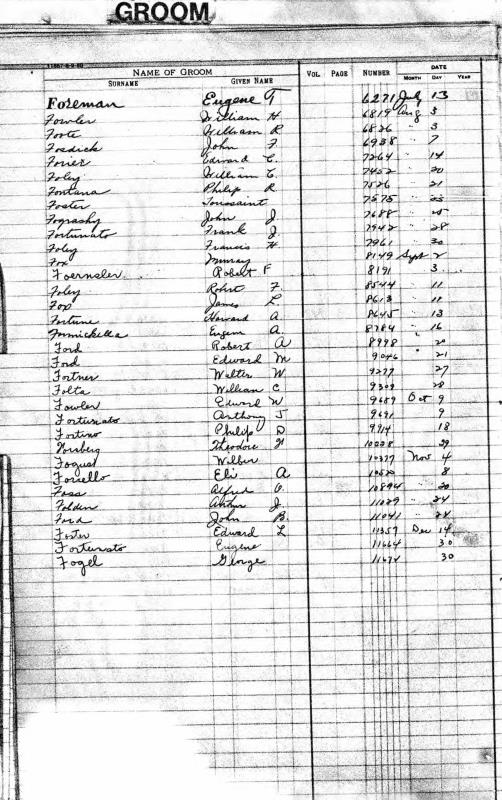 GROOM
NAME OF GROOM VOL PAGE NUMBER DATE
SURNAME GIVEN NAME MONTH DAY YEAR
Foreman Eugene T 6271 July 13
Fowler William H. 6819 Aug 3
Foote William R 6826 " 3
Fosdick John F. 6938 " 7
Forier Edward C. 7264 " 14
Foley William C. 7452 " 20
Fontana Philip R 7526 " 21
Foster Toussaint 7575 " 23
Fograshy John J. 7688 " 25
Fortunato Frank J. 7942 " 28
Foley Francis H 7961 " 30
Fox Murray 8149 Sept 2
Foernsler Robert F 8191 3
Foley Robert F. 8544 " 11
Fox James L. 8613 " 11
Fortune Howard A. 8645 " 13
Eugene A. 8784 " 16
Ford Robert A 8998 " 20
Ford Edward M 9046 " 21
Fortner Walter W 9277 " 27
Folta William C 9309 " 28
Fowler Edward W 9689 Oct 9
Fortunato Anthony J 9691 9
Fortino Philip D 9914 " 18
Theodore 10228 " 29
Fogus Wilbur 10377 Nov 4
Foriello Eli A 10520 " 8
Foss Alfred C. 10894 " 20
Folden Arthur J. 11029 " 24
Ford John B. 11041 " 24
Foster Edward L 11357 Dec 14
Fortunato Eugene 11664 " 30
Fogel George 11674 30